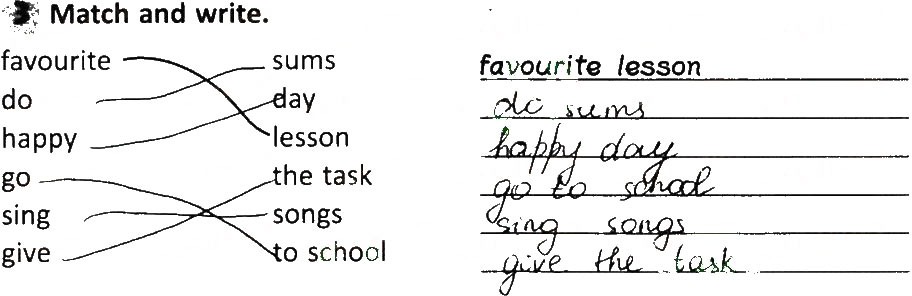 3. Match and write.
favourite sums favourite lesson
do day do sums
happy lesson happy day
go the task go to school
sing songs sing songs
give to school give the task